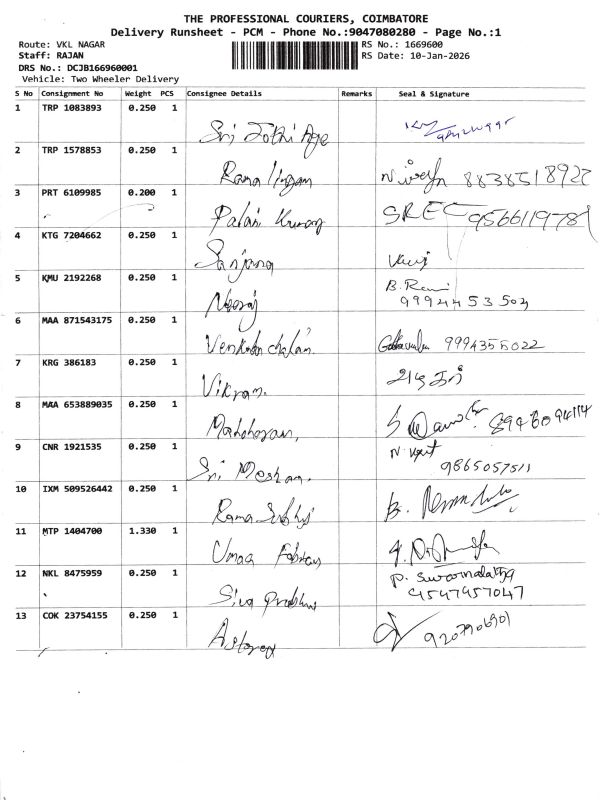 THE PROFESSIONAL COURIERS, COIMBATORE
Delivery Runsheet - PCM - Phone No.:9047080280 - Page No.:1
Route: VKL NAGAR
Staff: RAJAN
DRS No.: DCJB166960001
Vehicle: Two Wheeler Delivery
RS No.: 1669600
RS Date: 10-Jan-2026
S No Consignment No Weight PCS Consignee Details Remarks Seal & Signature
1 TRP 1083893 0.250 1
Sri Jothi Age
2 TRP 1578853 0.250 1
Rama lingam 8838518922
3 PRT 6109985 0.200 1
Palani Kumar SREC 9566119781
4 KTG 7204662 0.250 1
Sanjana
5 KMU 2192268 0.250 1 B. Rani
Neeraj 9994453503
6 MAA 871543175 0.250 1
Venkatachalam. 9994355022
7 KRG 386183 0.250 1
Vikram.
8 MAA 653889035 0.250 1
Manoharan, 8946094114
9 CNR 1921535 0.250 1
Sri Meshan. 9865057511
10 IXM 509526442 0.250 1
Rama B.
11 MTP 1404700 1.330 1
Umaa Fabrics
12 NKL 8475959 0.250 1 P. Swarnalatha
Siva Prabhu 9547957047
13 COK 23754155 0.250 1
9207906901